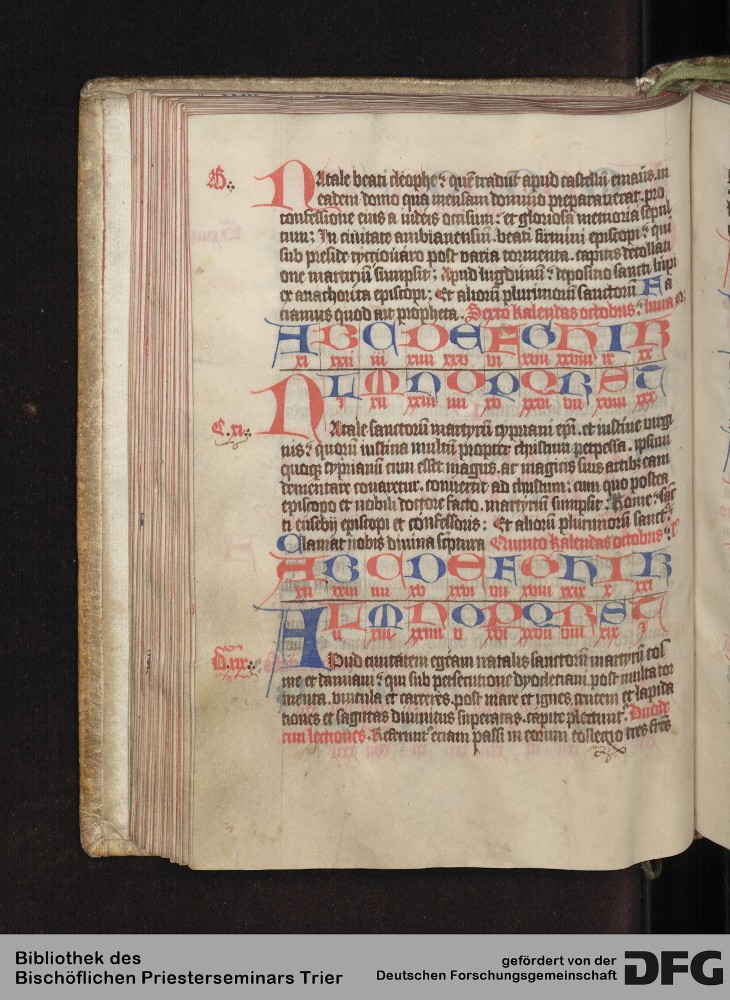 B.
Natale beati cleophe: quē tradūt apud castellū emaus. in
eadem domo qua mensam domino preparauerat. pro
confessione eius a iudeis occisum: et gloriosa memoria sepul
tum: In ciuitate ambianensiū. beati firmini episcopi: qui
sub preside rycciouaro post varia tormenta. capitis decollati
one martiriū sumpsit: Apud lugdunū: depositio sancti lupi
ex anachorita episcopi: Et aliorū plurimorū sanctorū Fa
ciamus quod ait propheta. Sexto kalendas octobris: luna
A B C D E F G H I K
xi xxii iii xiiii xxv vi xvii xxviii ix xx
L M N O P Q R S T
i xii xxiii iiii xv xxvi vii xviii xxix
C. xi.
Natale sanctorū martyrū cypriani epī. et iustine virgi
nis: quorū iustina multū propter christum perpessa. ipsum
quoqȝ cyprianū cum esset magus. ac magicis suis artibȝ eam
dementare conaretur. conuertit ad christum: cum quo postea
episcopo et nobili doctore facto. martyriū sumpsit: Rome: sāc
ti eusebij episcopi et confessoris: Et aliorū plurimorū sanct.
Clamat nobis diuina scptura Quinto kalendas octobris:
A B C D E F G H I K
xii xxiii iiii xv xxvi vii xviii xxix x xxi
L M N O P Q R S T
ii xiii xxiiii v xvi xxvii viii xix
D. xix.
Apud ciuitatem egeam natalis sanctorū martyrū cos
me et damiani: qui sub persecutione dyocletiani. post multa tor
menta. vincula et carceres. post mare et ignes. crucem et lapida
tiones et sagittas diuinitus superatas. capite plectunt. Duode
cim lectiones. Referunt etiam passi in eorum collegio tres frēs
Bibliothek des
Bischöflichen Priesterseminars Trier
gefördert von der
Deutschen Forschungsgemeinschaft
DFG